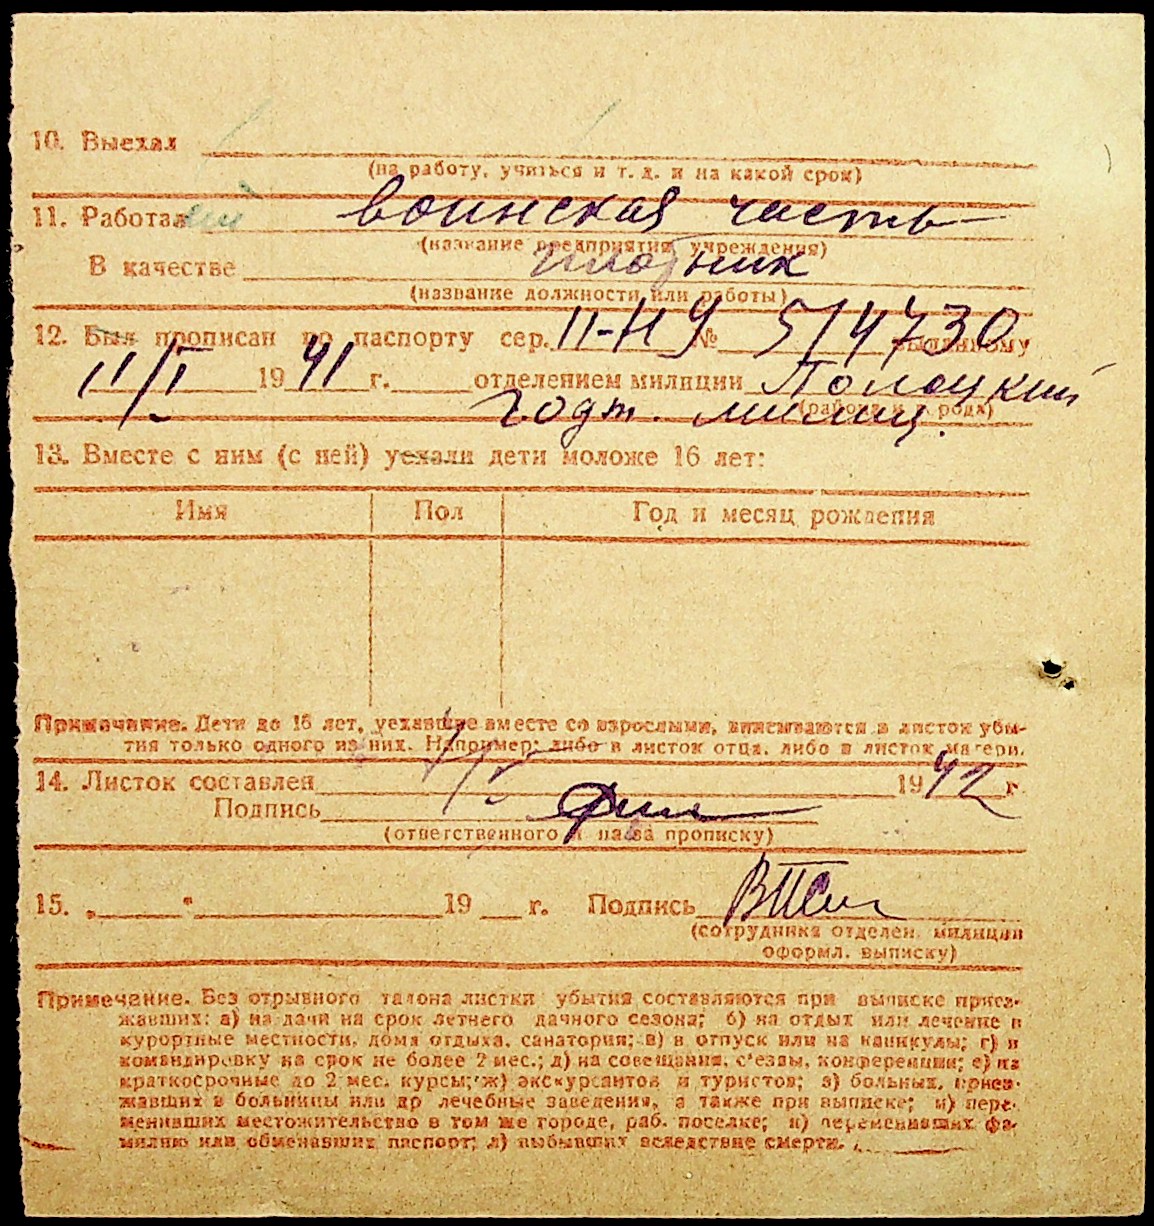 10. Выехал
(на работу, учиться и т. д. и на какой срок)
11. Работал воинская часть
(название предприятия, учреждения)
В качестве плотник
(название должности или работы)
12. Был прописан по паспорту сер. II-НЭ № 514730 выданному
11/I 1941 г. отделением милиции Полоцкий
(района и города)
милиц.
13. Вместе с ним (с ней) уехали дети моложе 16 лет:
Имя Пол Год и месяц рождения
Примечание. Дети до 16 лет, уехавшие вместе со взрослыми, вписываются в листок убы-
тия только одного из них. Например: либо в листок отца, либо в листок матери.
14. Листок составлен 1942 г.
Подпись
(ответственного лица за прописку)
15. „ " 19 г. Подпись
(сотрудника отделен. милиции
оформл. выписку)
Примечание. Без отрывного талона листки убытия составляются при выписке приез-
жавших: а) на дачи на срок летнего дачного сезона; б) на отдых или лечение в
курортные местности, дома отдыха, санатория; в) в отпуск или на каникулы; г) в
командировку на срок не более 2 мес.; д) на совещания, с'езды, конференции; е) на
краткосрочные до 2 мес. курсы; ж) экскурсантов и туристов; з) больных, приез-
жавших в больницы или др лечебные заведения, а также при выписке; и) пере-
менивших местожительство в том же городе, раб. поселке; к) переменивших фа-
милию или обменявших паспорт; л) выбывших вследствие смерти.